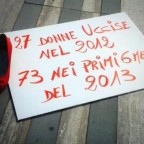 127 DONNE UCCISE
NEL 2012
73 NEI PRIMI 6 ME
DEL 2013